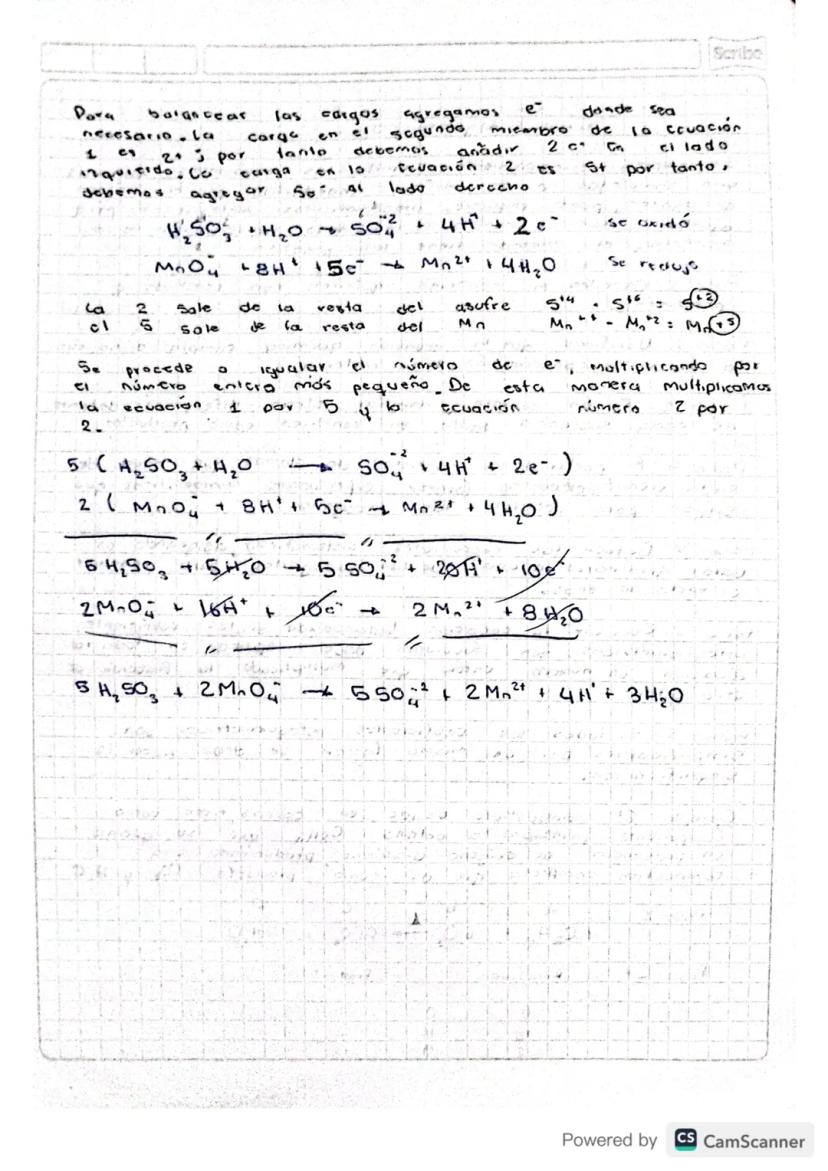 Scribe
Para balancear las cargas agregamos e⁻ donde sea
necesario. La carga en el segundo miembro de la ecuación
1 es 2+ ; por tanto debemos añadir 2 e⁻ en el lado
izquierdo. La carga en la ecuación 2 es 5+ por tanto,
debemos agregar 5e⁻ al lado derecho
H₂SO₃ + H₂O → SO₄⁻² + 4H⁺ + 2e⁻ se oxidó
MnO₄⁻ + 8H⁺ + 5e⁻ → Mn²⁺ + 4H₂O se redujo
La 2 sale de la resta del asufre S⁺⁴ - S⁺⁶ = S⁺²
el 5 sale de la resta del Mn Mn⁺⁷ - Mn⁺² = Mn⁺⁵
Se procede a igualar el número de e⁻, multiplicando por
el número entero más pequeño. De esta manera multiplicamos
la ecuación 1 por 5 y la ecuación número 2 por
2.
5 ( H₂SO₃ + H₂O → SO₄⁻² + 4H⁺ + 2e⁻ )
2 ( MnO₄⁻ + 8H⁺ + 5e⁻ → Mn²⁺ + 4H₂O )
5 H₂SO₃ + 5H₂O → 5 SO₄⁻² + 20H⁺ + 10e⁻
2MnO₄⁻ + 16H⁺ + 10e⁻ → 2 Mn²⁺ + 8 H₂O
5 H₂SO₃ + 2MnO₄⁻ → 5 SO₄⁻² + 2 Mn²⁺ + 4H⁺ + 3H₂O
Powered by CS CamScanner